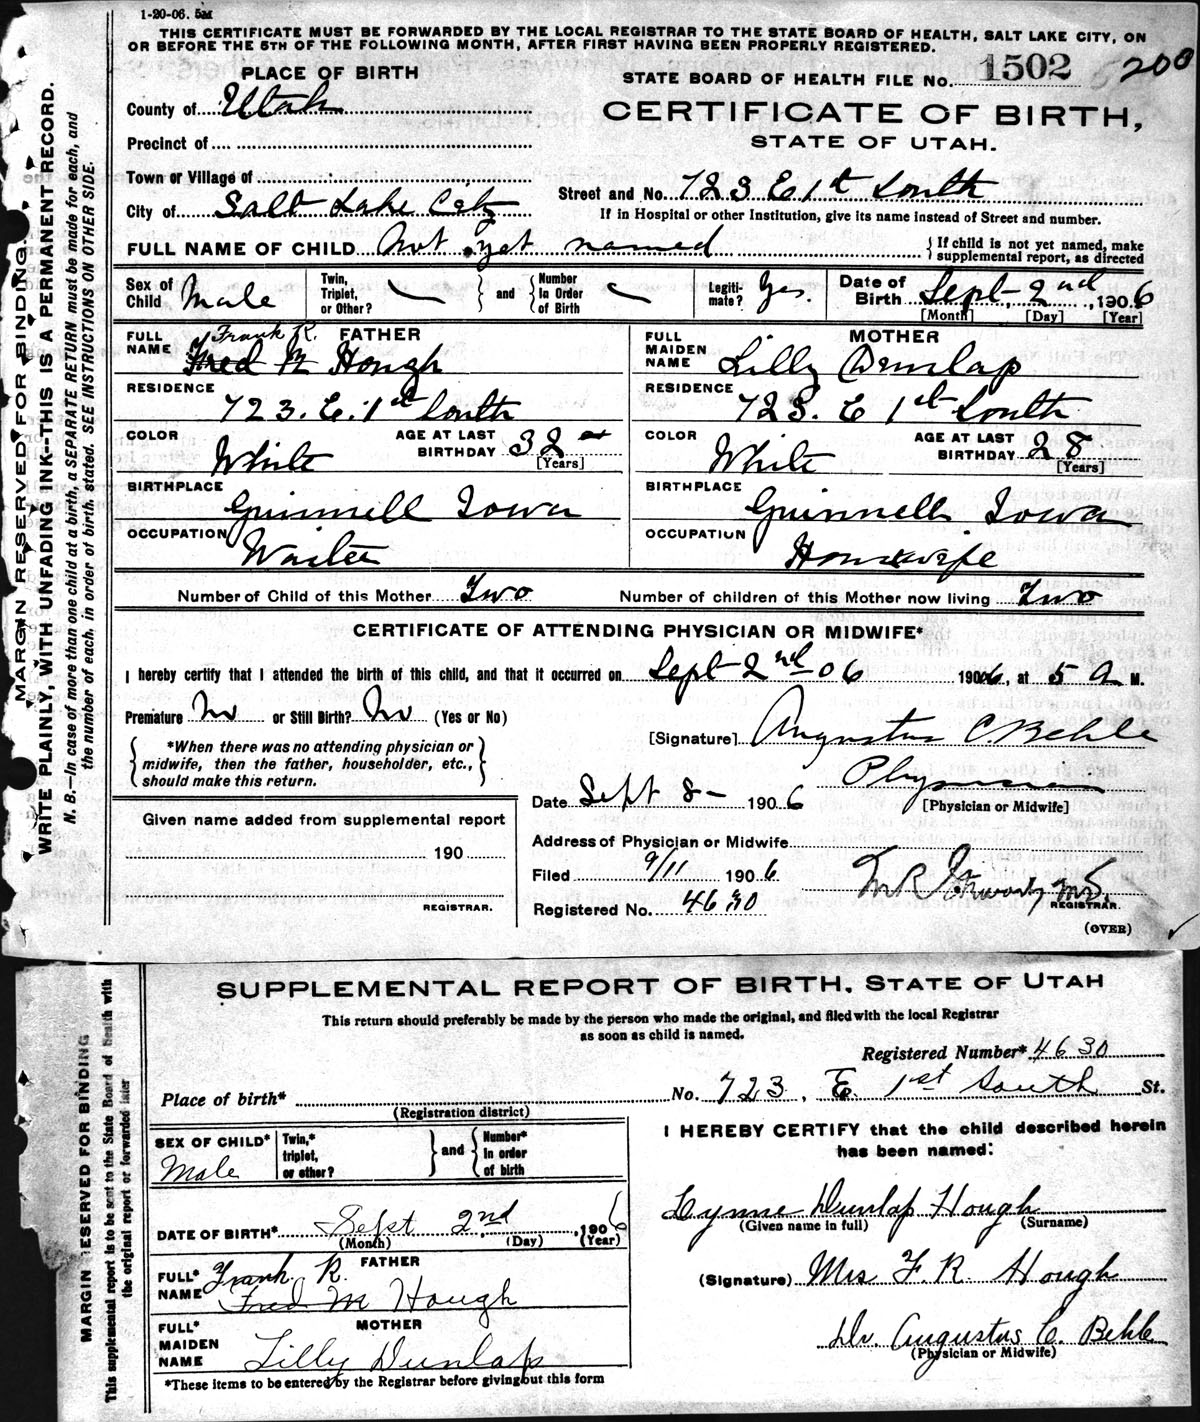 1-20-06. 5M
THIS CERTIFICATE MUST BE FORWARDED BY THE LOCAL REGISTRAR TO THE STATE BOARD OF HEALTH, SALT LAKE CITY, ON
OR BEFORE THE 5TH OF THE FOLLOWING MONTH, AFTER FIRST HAVING BEEN PROPERLY REGISTERED.
PLACE OF BIRTH
STATE BOARD OF HEALTH FILE No. 1502 200
County of Utah
CERTIFICATE OF BIRTH,
STATE OF UTAH.
Precinct of
Town or Village of
Street and No. 723 E 1st South
City of Salt Lake City
If in Hospital or other Institution, give its name instead of Street and number.
FULL NAME OF CHILD Not yet named
{ If child is not yet named, make
supplemental report, as directed
Sex of Child Male
Twin, Triplet, or Other? } and { Number In Order of Birth
Legiti-mate? Yes.
Date of Birth Sept- 2nd, 1906
[Month] [Day] [Year]
FULL NAME FATHER
Frank R.
Fred M Hough
RESIDENCE
723. E. 1st South
COLOR White
AGE AT LAST BIRTHDAY 32
[Years]
BIRTHPLACE
Grinnell Iowa
OCCUPATION
Waiter
FULL MAIDEN NAME MOTHER
Lilly Dunlap
RESIDENCE
723. E 1st South
COLOR White
AGE AT LAST BIRTHDAY 28
[Years]
BIRTHPLACE
Grinnell Iowa
OCCUPATION
Housewife
Number of Child of this Mother Two Number of children of this Mother now living Two
CERTIFICATE OF ATTENDING PHYSICIAN OR MIDWIFE*
I hereby certify that I attended the birth of this child, and that it occurred on Sept 2nd 06 1906, at 5 A M.
Premature No or Still Birth? No (Yes or No)
[Signature] Augustus C. Behle
{ *When there was no attending physician or
midwife, then the father, householder, etc.,
should make this return. }
Physician
Date Sept 8- 1906 [Physician or Midwife]
Given name added from supplemental report
190
REGISTRAR.
Address of Physician or Midwife
Filed 9/11 1906
M.D.
REGISTRAR.
Registered No. 4630
(OVER)
MARGIN RESERVED FOR BINDING.
WRITE PLAINLY, WITH UNFADING INK--THIS IS A PERMANENT RECORD.
N. B.—In case of more than one child at a birth, a SEPARATE RETURN must be made for each, and
the number of each, in order of birth, stated. SEE INSTRUCTIONS ON OTHER SIDE.
SUPPLEMENTAL REPORT OF BIRTH, STATE OF UTAH
This return should preferably be made by the person who made the original, and filed with the local Registrar
as soon as child is named.
Registered Number* 4630
Place of birth* No. 723. E. 1st South St.
(Registration district)
SEX OF CHILD* Male
Twin,* triplet, or other? } and { Number* in order of birth
I HEREBY CERTIFY that the child described herein
has been named:
DATE OF BIRTH* Sept 2nd, 1906
(Month) (Day) (Year)
Lynne Dunlap Hough
(Given name in full) (Surname)
FULL* NAME FATHER
Frank R.
Fred M Hough
(Signature) Mrs F. R. Hough
FULL* MAIDEN NAME MOTHER
Lilly Dunlap
Dr. Augustus C. Behle
(Physician or Midwife)
*These items to be entered by the Registrar before giving out this form
MARGIN RESERVED FOR BINDING
This supplemental report is to be sent to the State Board of Health with
the original report or forwarded later